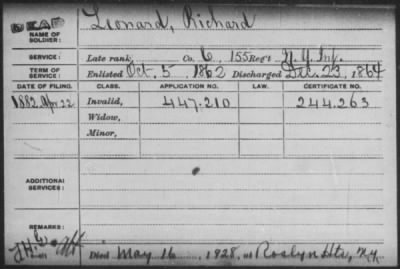 DEAD
NAME OF SOLDIER: Leonard, Richard
SERVICE: Late rank, Co. C, 155 Reg't N.Y. Inf.
TERM OF SERVICE: Enlisted Oct. 5 1862 Discharged Dec. 23, 1864
DATE OF FILING. CLASS. APPLICATION NO. LAW. CERTIFICATE NO.
1882 Apr 22 Invalid, 447.210 244.263
Widow,
Minor,
ADDITIONAL SERVICES:
REMARKS:
Died May 16, 1928, at Roslyn Hts, N.Y.